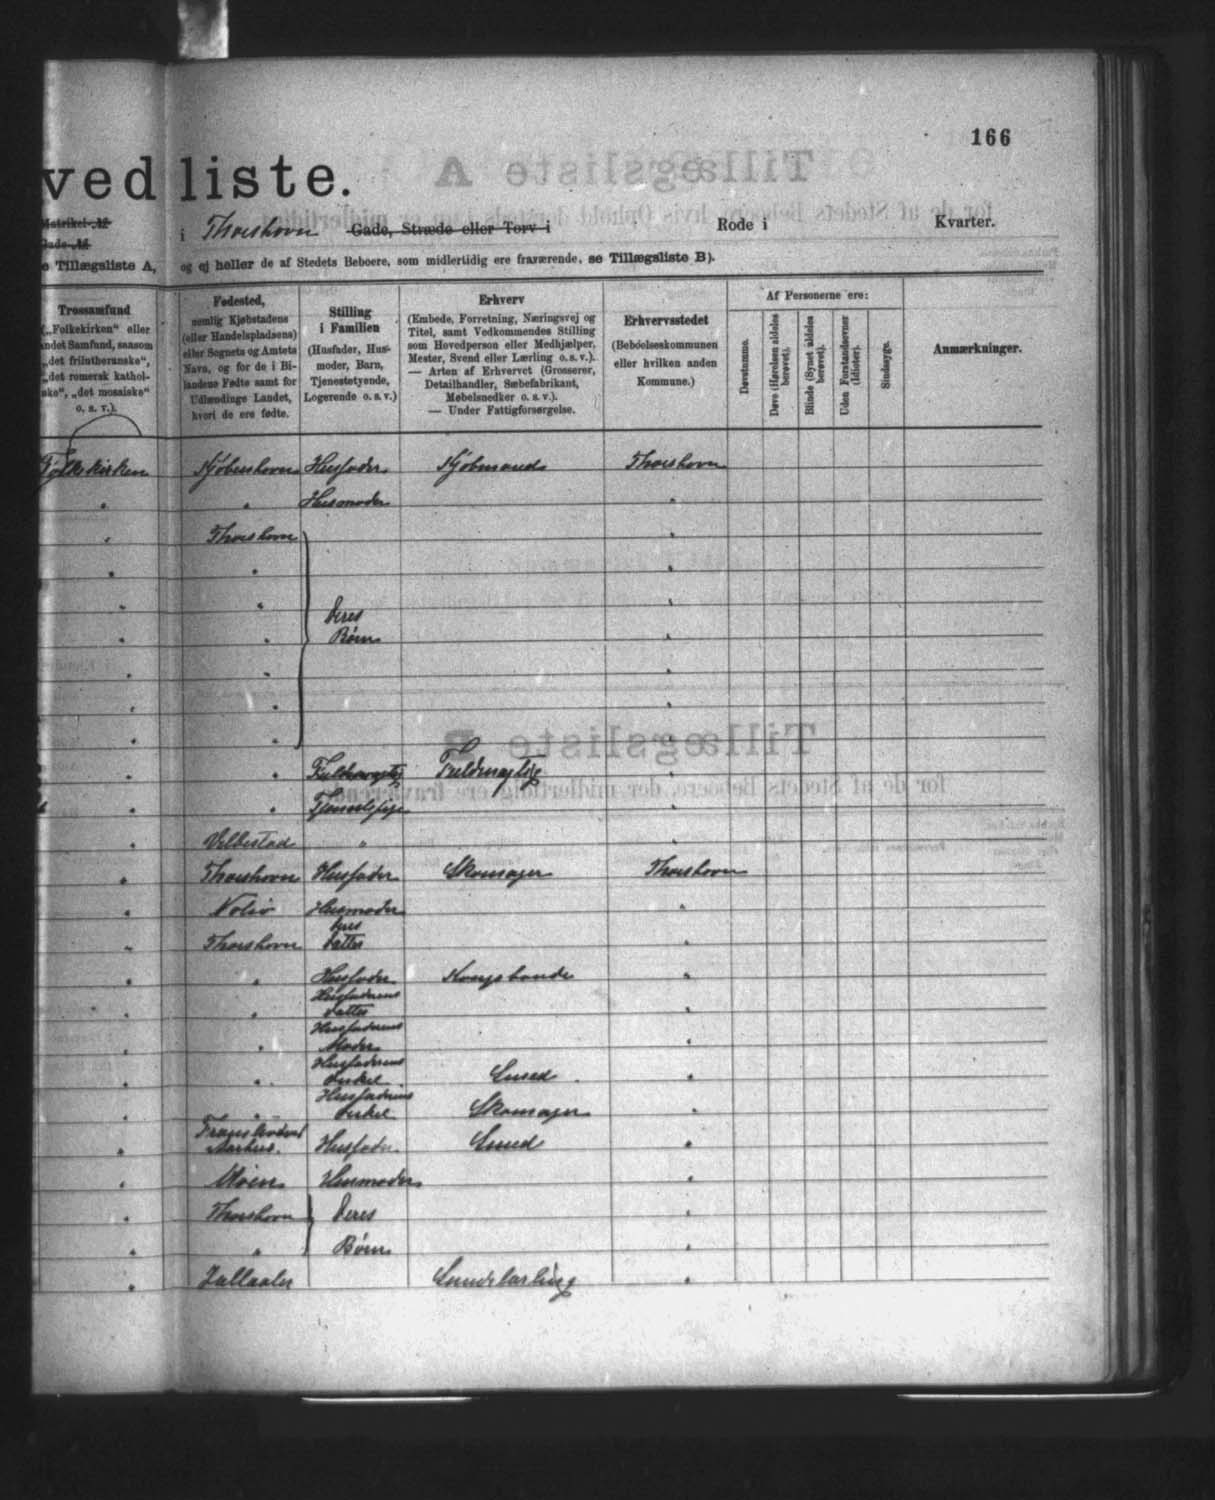 166
vedliste.
Matrikel-№
Gade-№
i Thorshavn Gade, Stræde eller Torv i Rode i Kvarter.
e Tillægsliste A, og ej heller de af Stedets Beboere, som midlertidig ere fraværende, se Tillægsliste B).
Trossamfund
(„Folkekirken“ eller
andet Samfund, saasom
„det frilutheranske“,
„det romersk kathol-
ske“, „det mosaiske“
o. s. v.).
Fødested,
nemlig Kjøbstadens
(eller Handelspladsens)
eller Sognets og Amtets
Navn, og for de i Bi-
landene Fødte samt for
Udlændinge Landet,
hvori de ere fødte.
Stilling
i Familien
(Husfader, Hus-
moder, Barn,
Tjenestetyende,
Logerende o. s. v.)
Erhverv
(Embede, Forretning, Næringsvej og
Titel, samt Vedkommendes Stilling
som Hovedperson eller Medhjælper,
Mester, Svend eller Lærling o. s. v.).
— Arten af Erhvervet (Grosserer,
Detailhandler, Sæbefabrikant,
Møbelsnedker o. s. v.).
— Under Fattigforsørgelse.
Erhvervsstedet
(Beboelseskommunen
eller hvilken anden
Kommune.)
Af Personerne ere:
Døvstumme.
Døve (Hørelsen aldeles
berøvet).
Blinde (Synet aldeles
berøvet).
Uden Forstandsevner
(Idioter).
Sindssyge.
Anmærkninger.
Folkekirken Kjøbenhavn Husfader Kjøbmand Thorshavn
" " Husmoder "
" Thorshavn "
" " "
" " Deres "
" " Børn "
" " "
" " "
" " "
" " Fuldmægtig "
" " Tjenestepige "
" Velbestad " "
" Thorshavn Husfader Skomager Thorshavn
" Nolsø Husmoder "
" Thorshavn Datter "
" " Husfader Kongsbonde "
" " Husfaderens Datter "
" " Husfaderens Moder "
" " Husfaderens Onkel Smed "
" " Husfaderens Onkel Skomager "
" Aarhus. Husfader Smed "
" Husmoder "
" Thorshavn Deres "
" " Børn "
" Smedelærling "